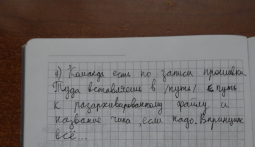 а) Команда есть по записи прошивки
Туда вставляете в /путь/ с путь
к разархивированному файлу и
название чипа, если надо. В принципе
всё...